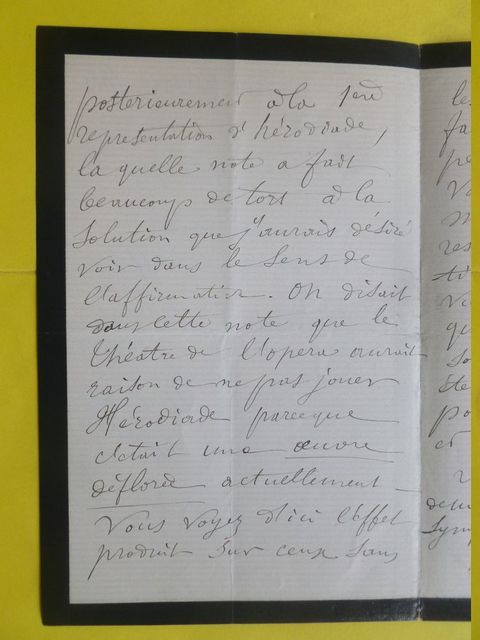 posterieurement à la 1ere
représentation d'hérodiade,
la quelle note a fait
beaucoup de tort à la
solution que j'aurais désiré
voir dans le sens de
l'affirmation. On disait
dans cette note que le
théâtre de l'opéra aurait
raison de ne pas jouer
Hérodiade parceque
c'était une œuvre
déflorée actuellement –
Vous voyez d'ici l'effet
produit sur ceux sans